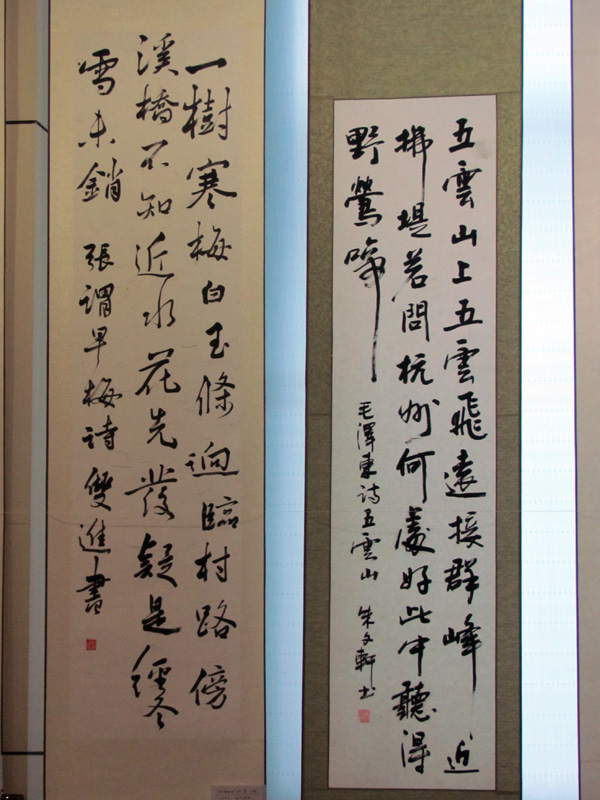 五雲山上五雲飛遠接群峰近
拂堤若問杭州何處好此中聽得
野鶯啼
毛澤東詩五雲山 朱文軒书
一樹寒梅白玉條迥臨村路傍
溪橋不知近水花先發疑是經冬
雪未銷 張謂早梅詩 雙進書